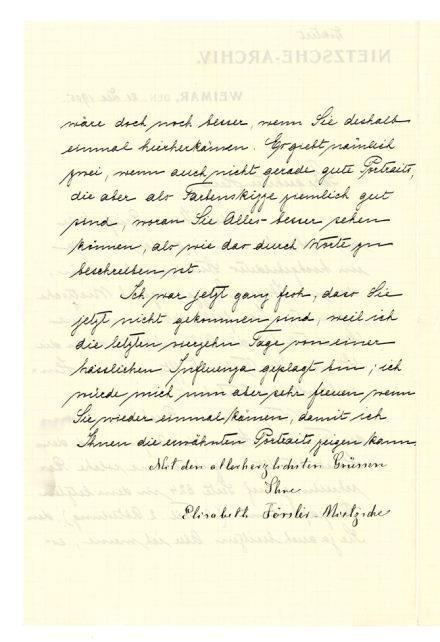 wäre doch noch besser, wenn Sie deshalb
einmal hierherkämen. Es giebt nämlich
zwei, wenn auch nicht gerade gute Portraits,
die aber als Farbenskizze ziemlich gut
sind, woran Sie Alles besser sehen
können, als wie das durch Worte zu
beschreiben ist.
Ich war jetzt ganz froh, dass Sie
jetzt nicht gekommen sind, weil ich
die letzten vierzehn Tage von einer
hässlichen Influenza geplagt bin; ich
würde mich nun aber sehr freuen wenn
Sie wieder einmal kämen, damit ich
Ihnen die erwähnten Portraits zeigen kann.
Mit den allerherzlichsten Grüssen
Ihre
Elisabeth Förster-Nietzsche
NIETZSCHE-ARCHIV.
WEIMAR, DEN